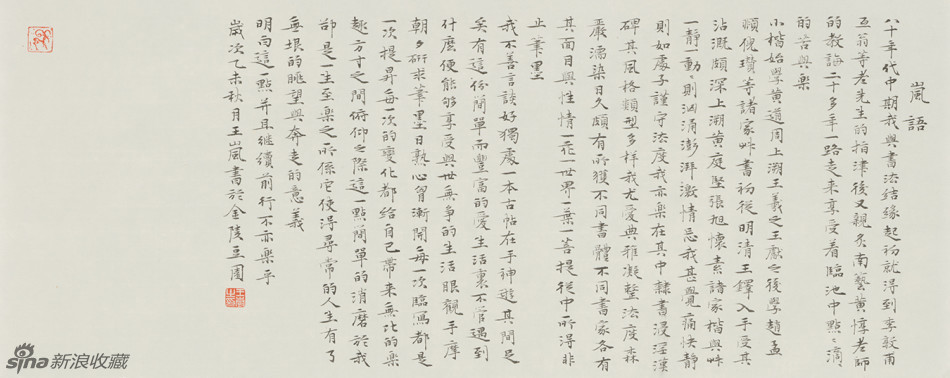 嵐語
八十年代中期我與書法結緣起初就得到李毅甫
五翁等老先生的指津後又親炙南藝黄惇老師
的教誨二十多年一路走來享受着臨池中點點滴滴
的苦與樂
小楷始學黄道周上溯王羲之王獻之後學趙孟
頫倪瓚等諸家艸書初從明清王鐸入手受其
沾溉頗深上溯黄庭堅張旭懷素諸家楷與艸
一靜一動動則汹涌澎湃激情忘我甚覺痛快靜
則如處子謹守法度我亦樂在其中隸書浸淫漢
碑其風格類型多樣我尤愛典雅凝整法度森
嚴濡染日久頗有所獲不同書體不同書家各有
其面目與性情一花一世界一葉一菩提從中所得非
止筆墨
我不善言談好獨處一本古帖在手神遊其間足
矣有這份簡單而豐富的愛生活裏不管遇到
什麽便能够享受與世無争的生活眼觀手摩
朝夕研求筆墨日熟心智漸開每一次臨寫都是
一次提昇每一次的變化都給自己帶來無比的樂
趣方寸之間俯仰之際這一點簡單的消磨於我
卻是一生至樂之所係它使得尋常的人生有了
無垠的眺望與奔走的意義
明向這一點并且繼續前行不亦樂乎
歲次乙未秋月王嵐書於金陵豆園
sina 新浪收藏